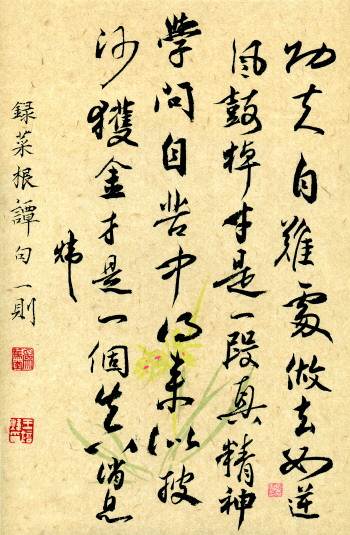 功夫自難處做去如逆
風鼓棹才是一段真精神
學問自苦中得來似披
沙獲金才是一個真消息
煒
録菜根譚句一則